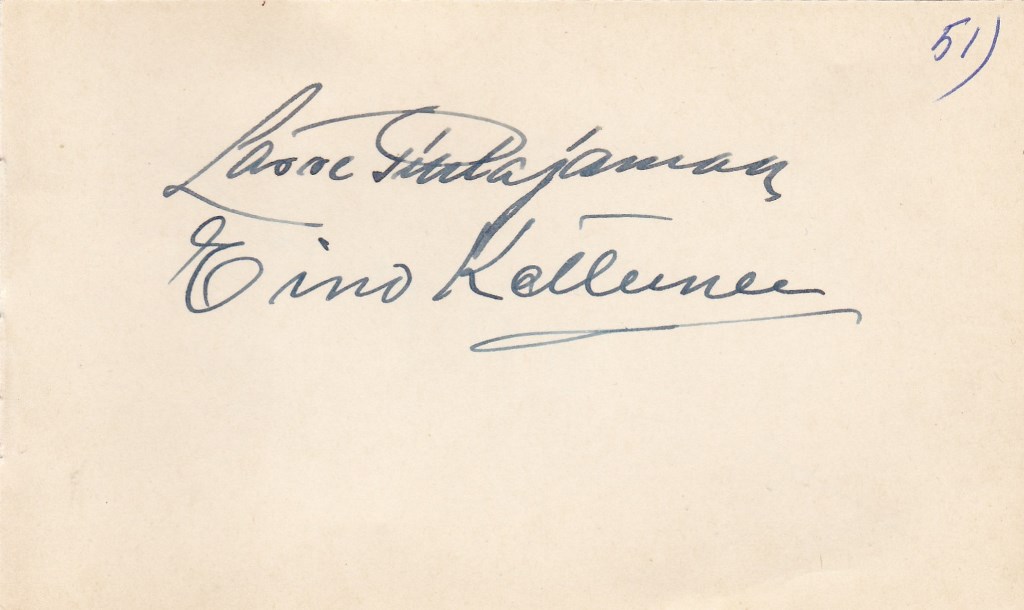 51)
Lasse Pihlajamaa
Eino Kettunen